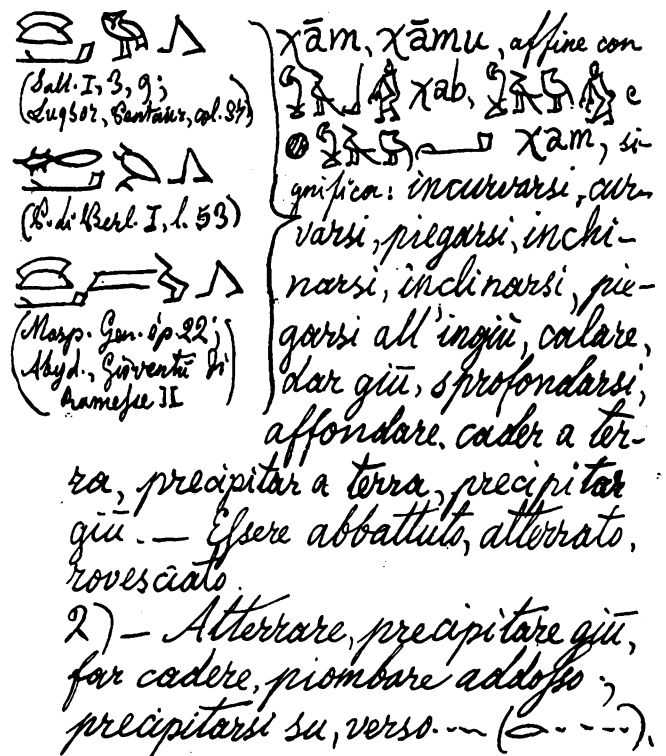 (Sall. I, 3, 9;
Luqsor, Pentaur, col. 37)
(P. di Berl. I, l. 53)
(Masp. Gen. ép. 22;
Abyd., Gioventù di
Ramesse II
χām, χāmu, affine con
χab, e
χam, si-
gnifica: incurvarsi, cur-
varsi, piegarsi, inchi-
narsi, inclinarsi, pie-
garsi all'ingiù, calare,
dar giù, sprofondarsi,
affondare, cader a ter-
ra, precipitar a terra, precipitar
giù. — Essere abbattuto, atterrato,
rovesciato.
2) — Atterrare, precipitare giù,
far cadere, piombare addosso;
precipitarsi su, verso.... (𓂋.....).